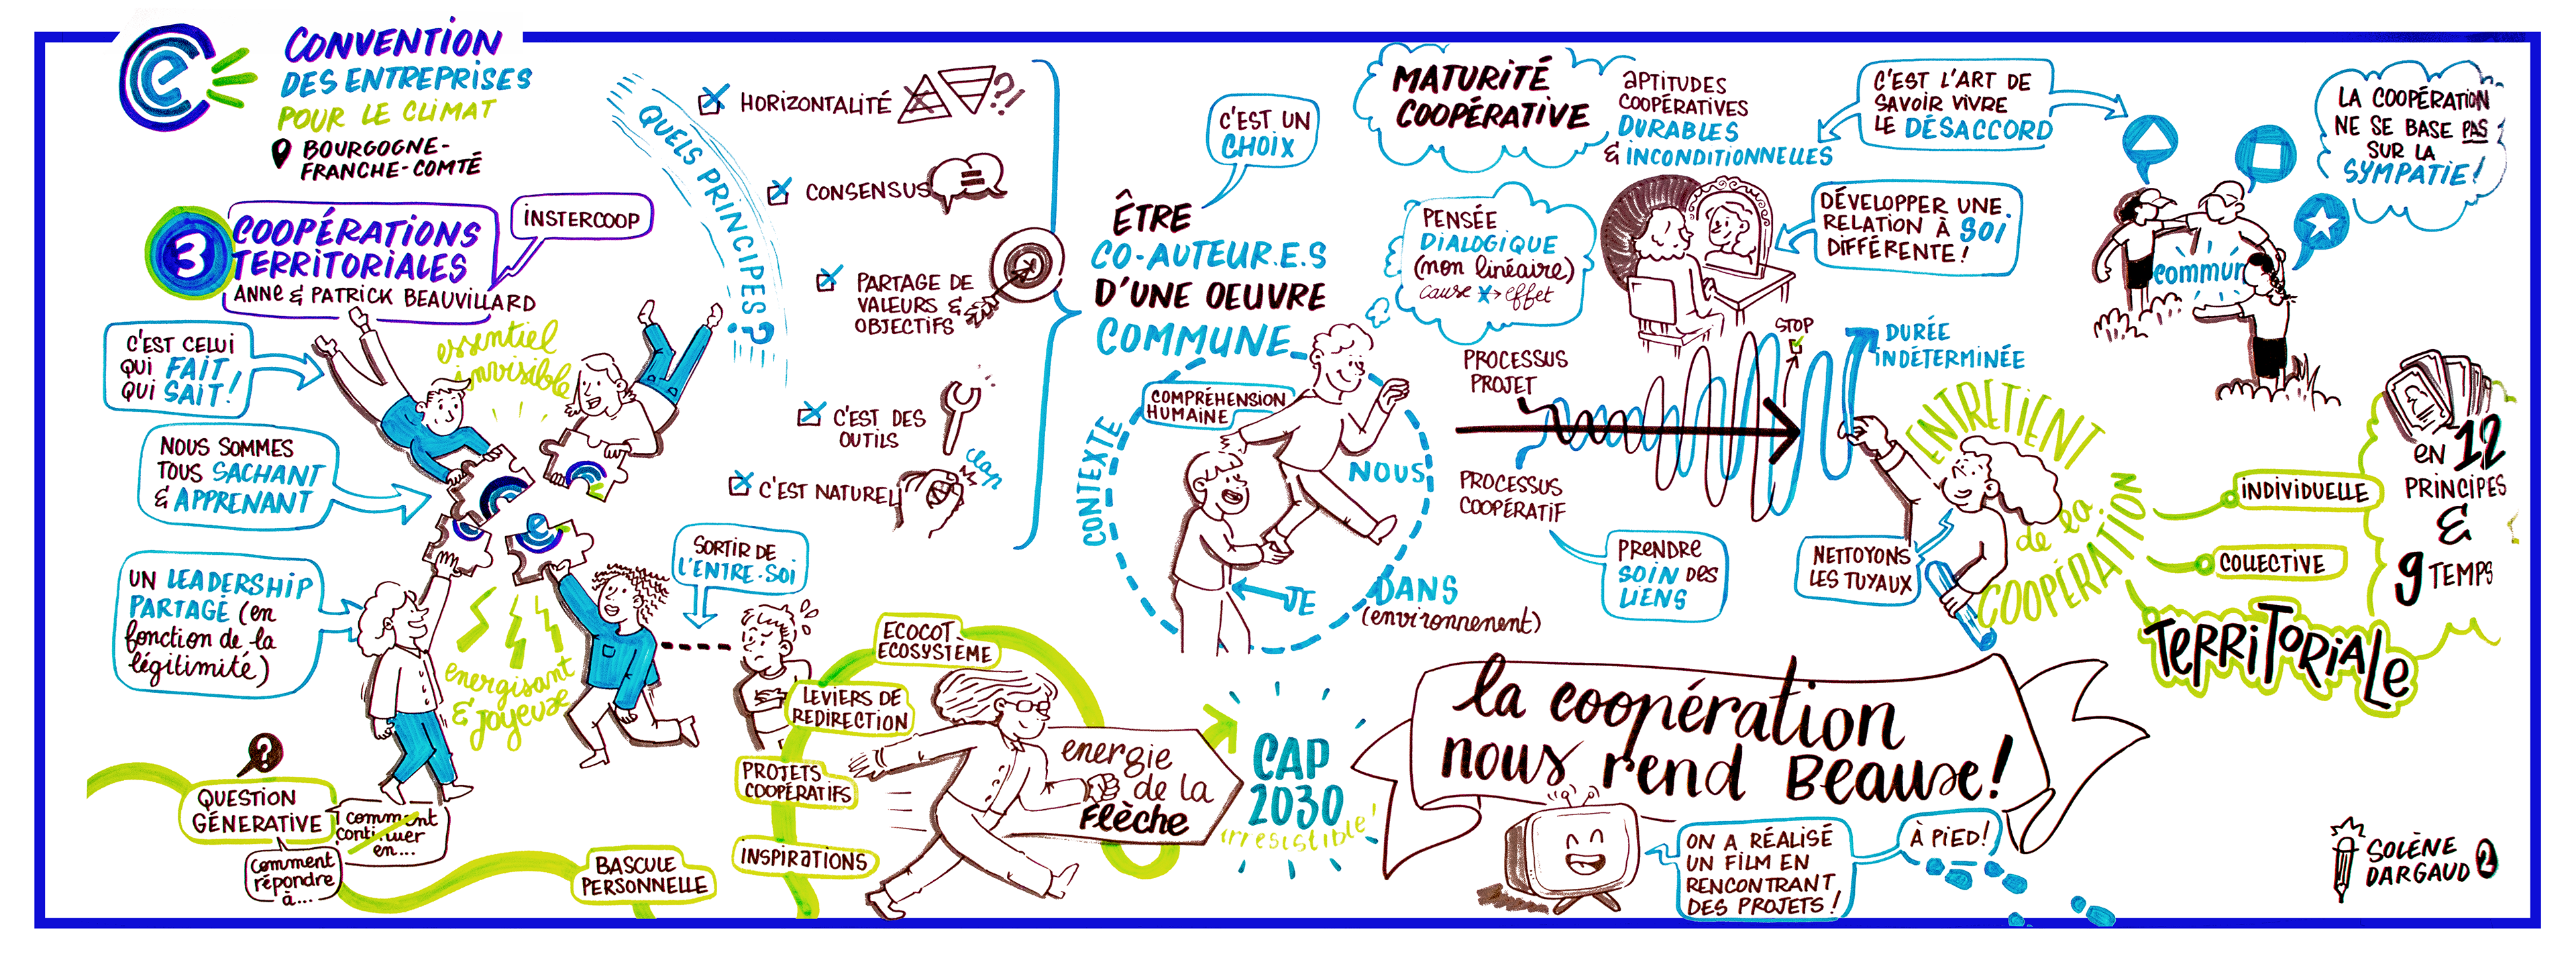 e
CONVENTION
DES ENTREPRISES
POUR LE CLIMAT
BOURGOGNE-
FRANCHE-COMTÉ
3
COOPÉRATIONS
TERRITORIALES
ANNE & PATRICK BEAUVILLARD
INSTERCOOP
C'EST CELUI
QUI FAIT
QUI SAIT!
NOUS SOMMES
TOUS SACHANT
& APPRENANT
UN LEADERSHIP
PARTAGÉ (en
fonction de la
légitimité)
essentiel
invisible
e
energisant
& joyeuse
SORTIR DE
L'ENTRE-SOI
QUELS PRINCIPES?
HORIZONTALITÉ
?!
CONSENSUS
=
PARTAGE DE
VALEURS &
OBJECTIFS
C'EST DES
OUTILS
C'EST NATUREL
clap
C'EST UN
CHOIX
ÊTRE
CO-AUTEUR.E.S
D'UNE OEUVRE
COMMUNE
CONTEXTE
COMPRÉHENSION
HUMAINE
NOUS
JE
DANS
(environnenent)
MATURITÉ
COOPÉRATIVE
APTITUDES
COOPÉRATIVES
DURABLES
& INCONDITIONNELLES
C'EST L'ART DE
SAVOIR VIVRE
LE DÉSACCORD
LA COOPÉRATION
NE SE BASE PAS
SUR LA
SYMPATIE!
PENSÉE
DIALOGIQUE
(non linéaire)
cause → effet
DÉVELOPPER UNE
RELATION À SOI
DIFFÉRENTE!
commun
PROCESSUS
PROJET
STOP
DURÉE
INDÉTERMINÉE
PROCESSUS
COOPÉRATIF
PRENDRE
SOIN DES
LIENS
NETTOYONS
LES TUYAUX
ENTRETIENT
de la
COOPÉRATION
INDIVIDUELLE
COLLECTIVE
TERRITORIALE
EN 12
PRINCIPES
&
9 TEMPS
?
QUESTION
GÉNERATIVE
comment
continuer
en...
comment
répondre
à...
BASCULE
PERSONNELLE
INSPIRATIONS
PROJETS
COOPÉRATIFS
LEVIERS DE
REDIRECTION
ECOCOT
ECOSYSTÈME
energie
de la
Flèche
CAP
2030
irresistible!
la coopération
nous rend Beau.se!
ON A RÉALISÉ
UN FILM EN
RENCONTRANT
DES PROJETS!
À PIED!
SOLÈNE
DARGAUD 2